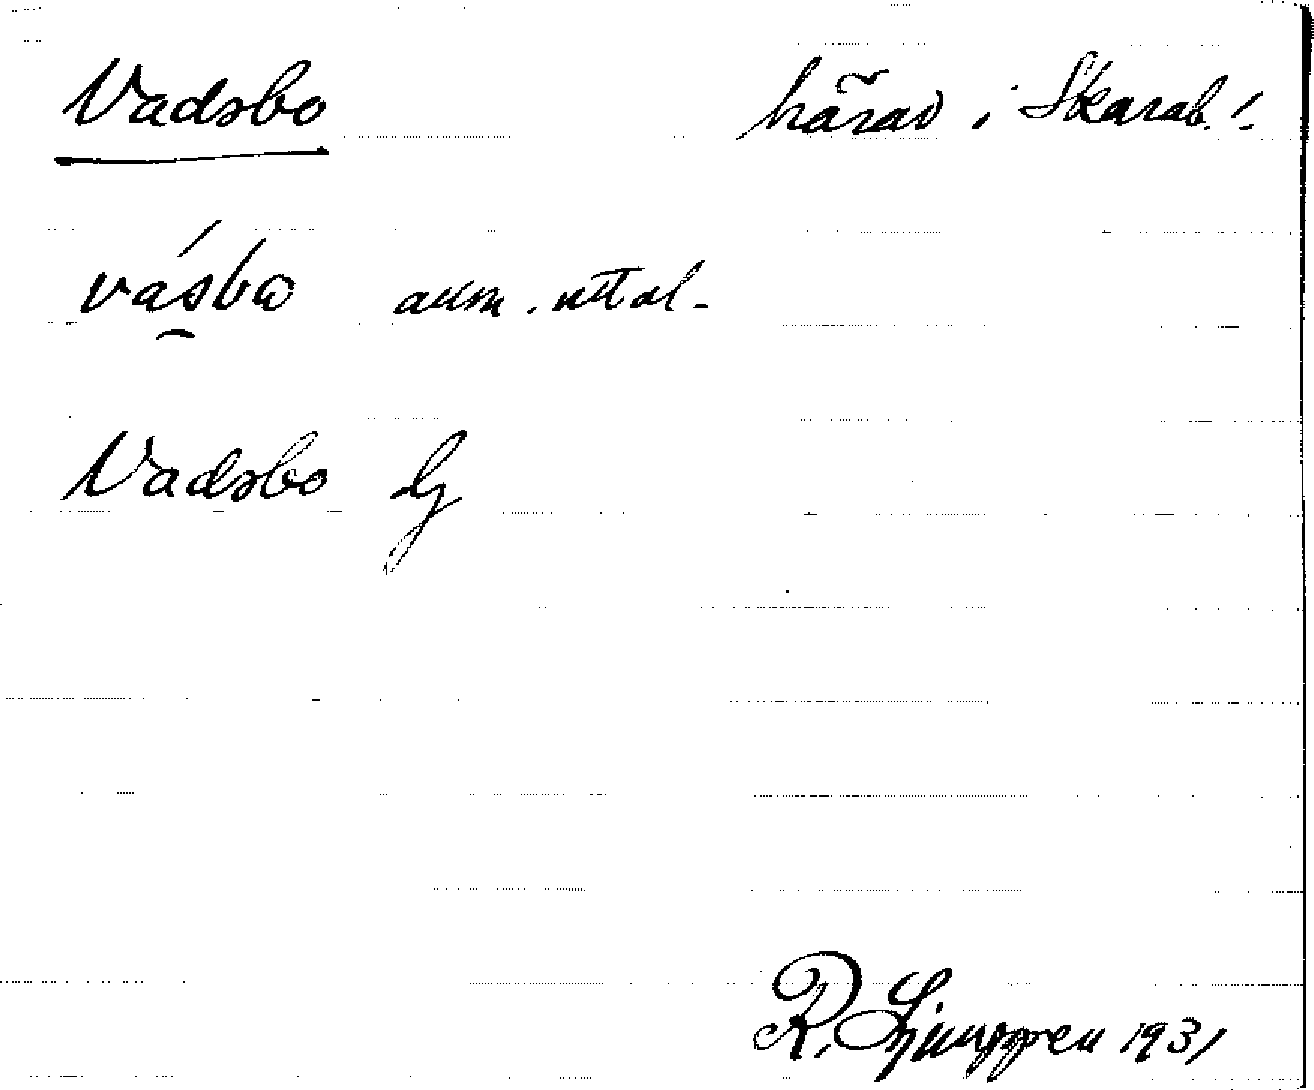 Vadsbo härad i Skarab. l.
vásbo allm. uttal.
Vadsbo
R. Ljunggren 1931